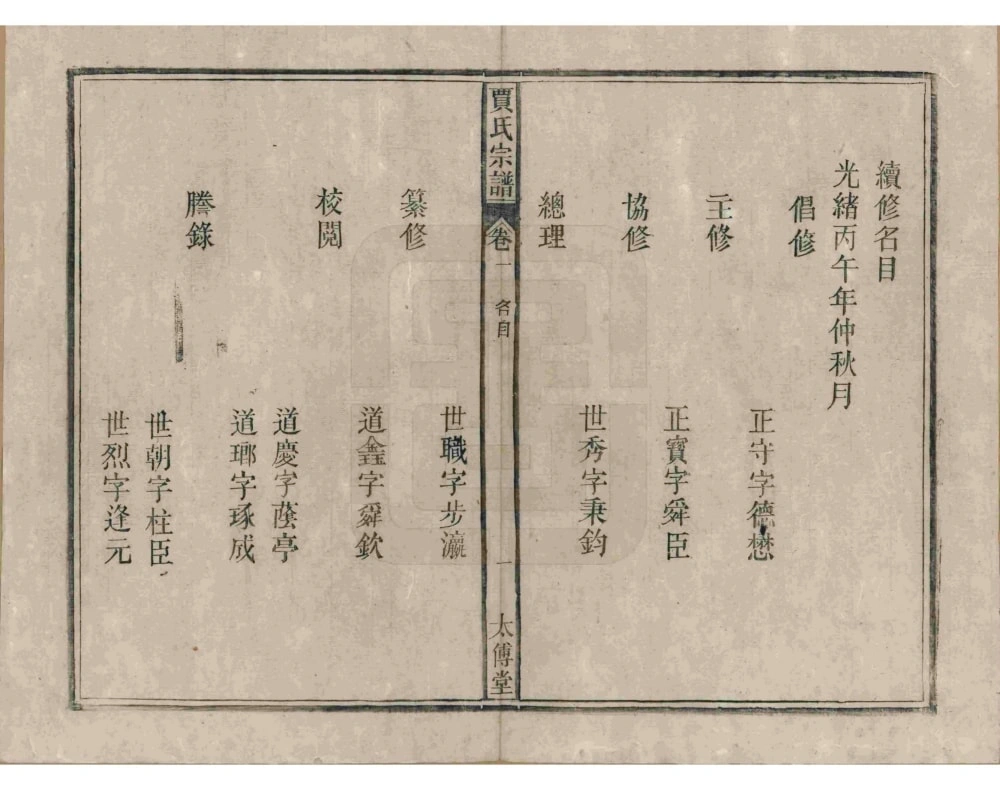 續修名目
光緒丙午年仲秋月
倡修
正守字德懋
主修
正寶字舜臣
協修
世秀字秉鈞
總理
賈氏宗譜
卷一
名目
一
太傅堂
世職字步瀛
纂修
道鑫字舜欽
校閱
道慶字蔭亭
道瑯字琢成
謄錄
世朝字柱臣
世烈字逢元